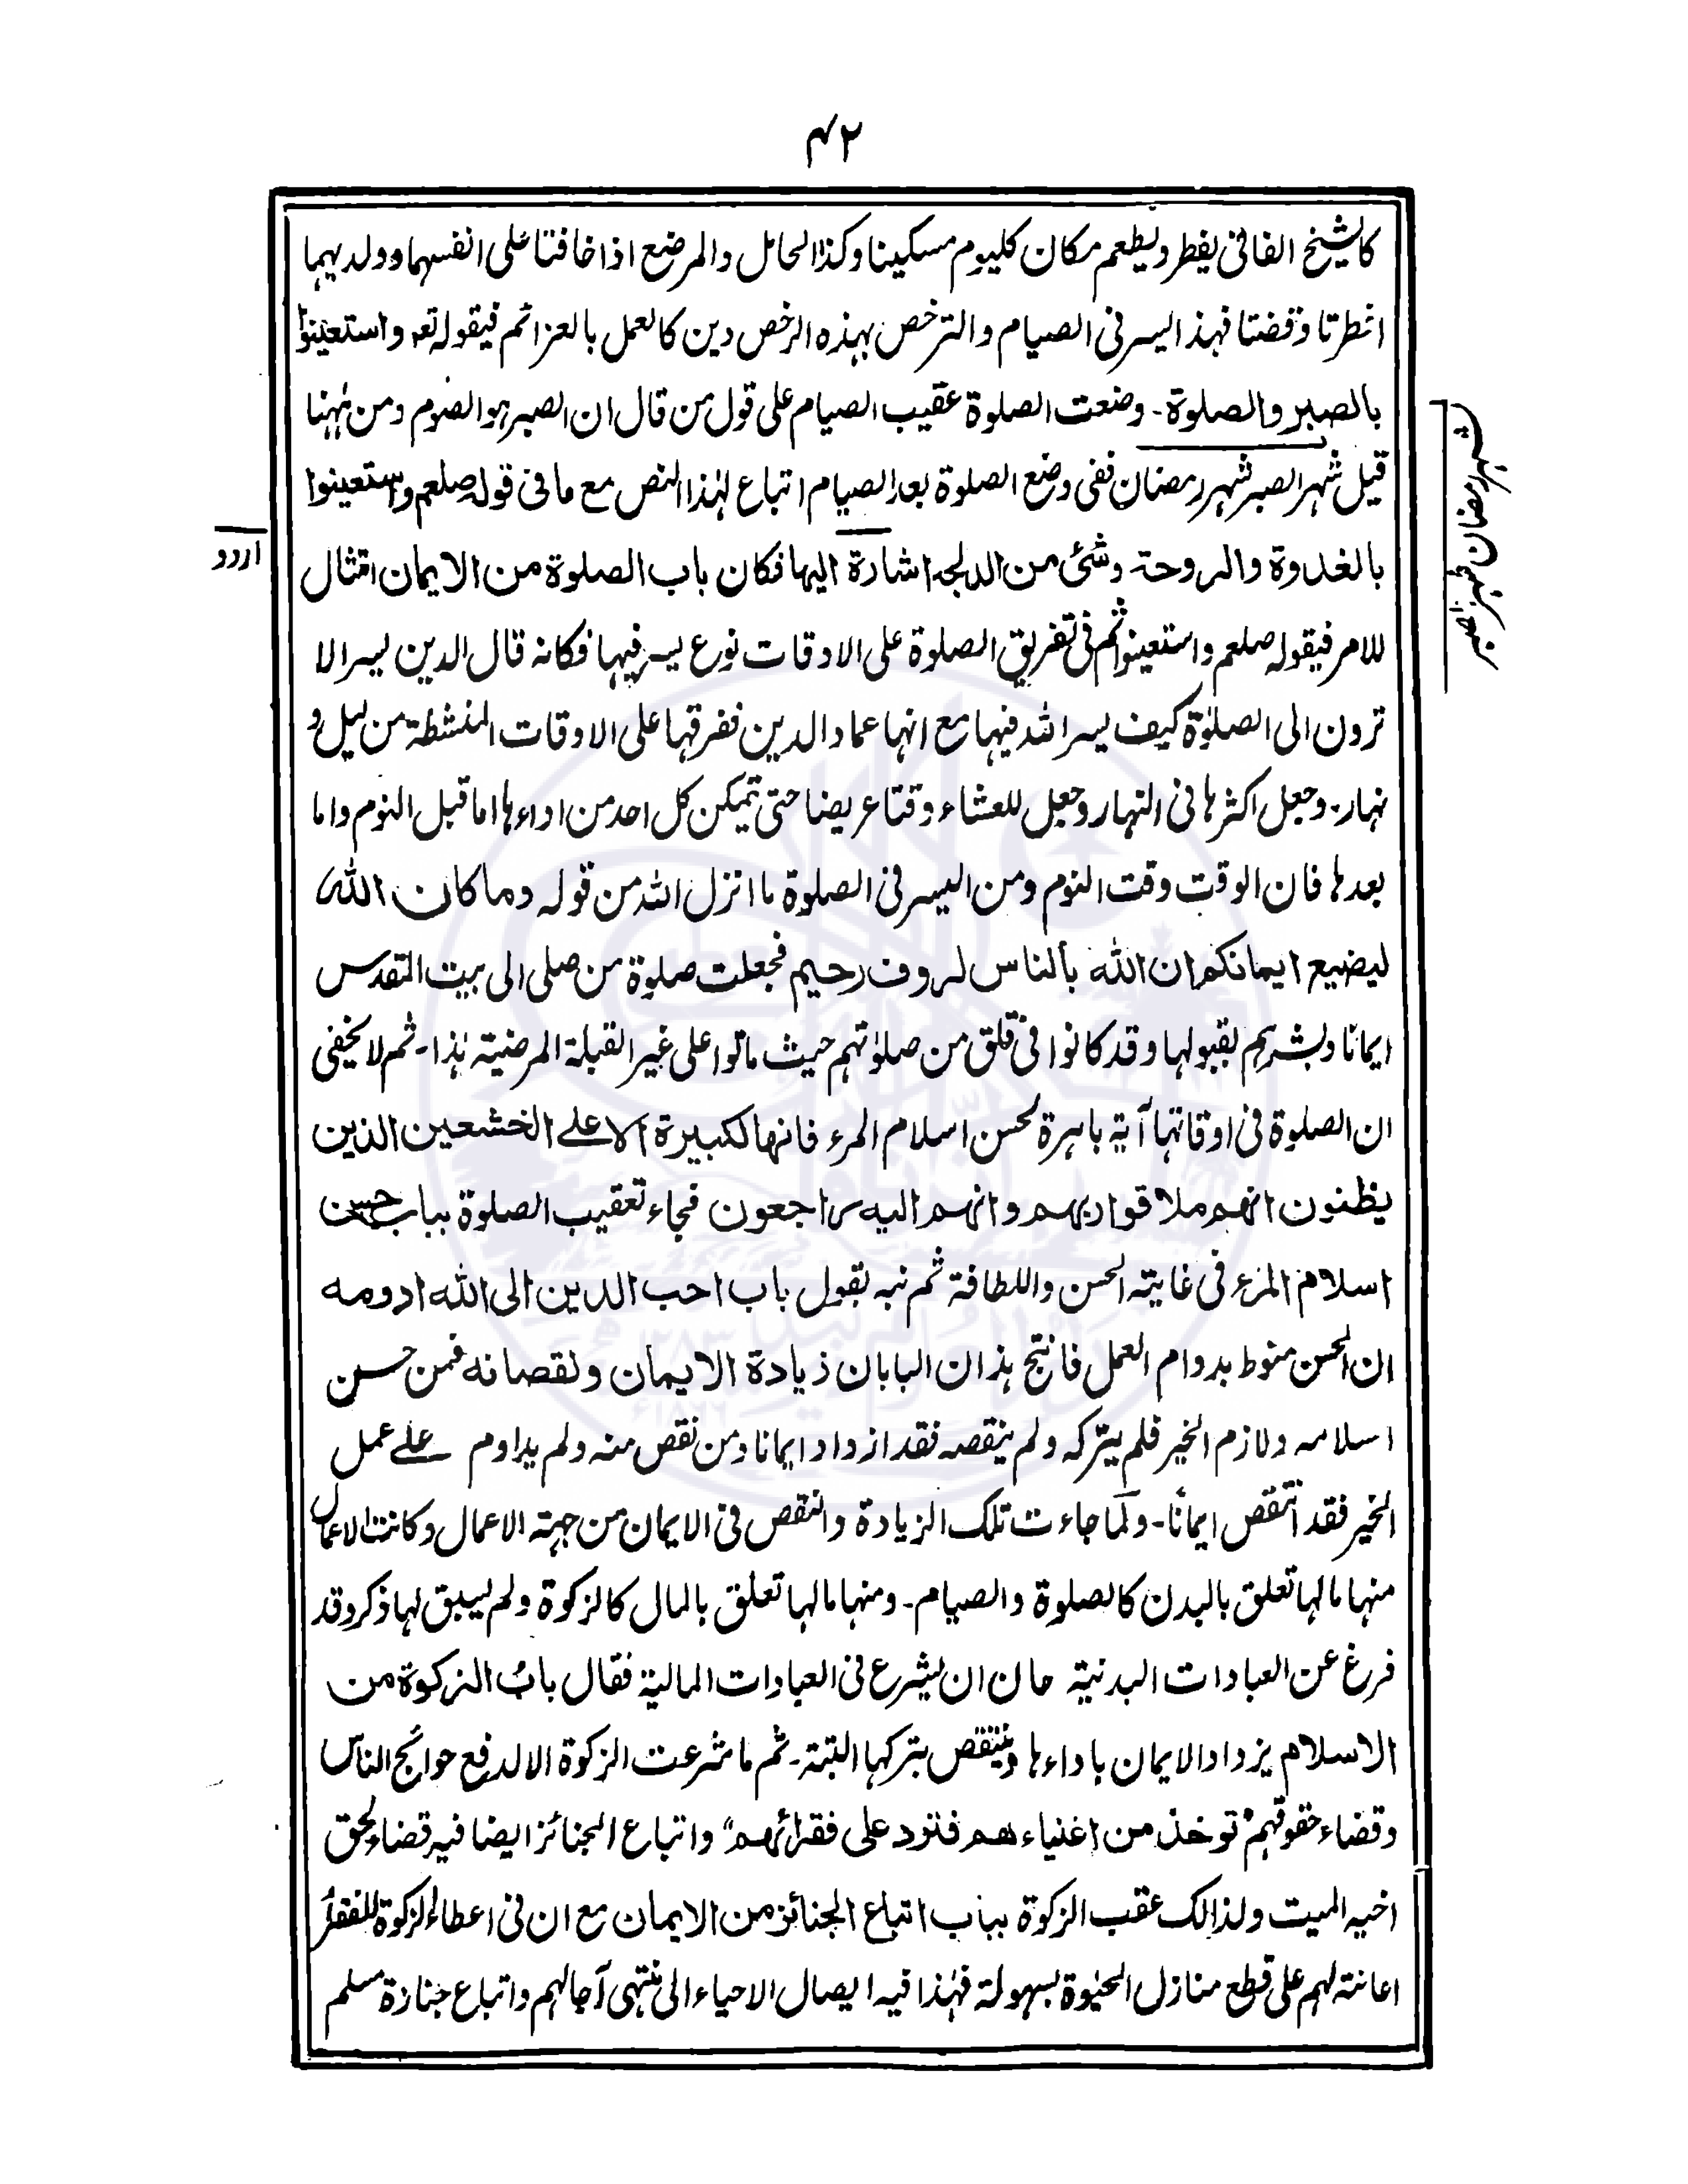 ۴۲
كالشيخ الفانى يفطر ويطعم مكان كليوم مسكينا وكذا الحامل والمرضع اذا خافتا على انفسهما وولديهما
افطرتا وقضتا فهذا اليسر فى الصيام والترخص بهذه الرخص دين كالعمل بالعزائم فبقوله تع واستعينوا
بالصبر والصلوة۔ وضعت الصلوة عقيب الصيام على قول من قال ان الصبر هو الصوم ومن ههنا
قيل شهر الصبر شهر رمضان ففى وضع الصلوة بعد الصيام اتباع لهذا النص مع ما فى قوله صلعم واستعينوا
بالغدوة والروحة وشئ من الدلجة اشارة اليها فكان باب الصلوة من الايمان امتثال
للامر فبقوله صلعم واستعينوا ثم فى تفريق الصلوة على الاوقات نوع يسر فيها فكانه قال الدين يسر الا
ترون الى الصلوة كيف يسر الله فيها مع انها عماد الدين ففرقها على الاوقات المنشطة من ليل و
نهار۔ وجعل اكثرها فى النهار وجعل للعشاء وقتا عريضا حتى يتمكن كل احد من اداءها اما قبل النوم واما
بعدها فان الوقت وقت النوم ومن اليسر فى الصلوة ما انزل الله من قوله وما كان الله
ليضيع ايمانكم ان الله بالناس لروف رحيم فجعلت صلوة من صلى الى بيت المقدس
ايمانا وبشرهم بقبولها وقد كانوا فى قلق من صلوتهم حيث ماتوا على غير القبلة المرضية هذا۔ ثم لا يخفى
ان الصلوة فى اوقاتها آية باهرة لحسن اسلام المرء فانها لكبيرة الا على الخشعين الذين
يظنون انهم ملاقوا ربهم وانهم اليه راجعون فجاء تعقيب الصلوة بباب حسن
اسلام المرء فى غاية الحسن واللطافة ثم نبه بقول باب احب الدين الى الله ادومه
ان الحسن منوط بدوام العمل فانتج هذان البابان زيادة الايمان ونقصانه فمن حسن
اسلامه ولازم الخير فلم يتركه ولم ينقصه فقد ازداد ايمانا ومن نقص منه ولم يداوم على عمل
الخير فقد انتقص ايمانا۔ ولما جاءت تلك الزيادة والنقص فى الايمان من جهة الاعمال وكانت الاعمال
منها مالها تعلق بالبدن كالصلوة والصيام۔ ومنها مالها تعلق بالمال كالزكوة ولم يسبق لها ذكر وقد
فرغ عن العبادات البدنية حان ان يشرع فى العبادات المالية فقال باب الزكوة من
الاسلام يزداد الايمان باداءها وينتقص بتركها البتة۔ ثم ما شرعت الزكوة الا لدفع حوائج الناس
وقضاء حقوقهم توخذ من اغنياءهم فترد على فقرائهم واتباع الجنائز ايضا فيه قضاء لحق
اخيه الميت ولذالك عقب الزكوة بباب اتباع الجنائز من الايمان مع ان فى اعطاء الزكوة للفقراء
اعانة لهم على قطع منازل الحيوة بسهولة فهذا فيه ايصال الاحياء الى منتهى آجالهم واتباع جنازة مسلم
شهر رمضان شهر الصبر
اردو